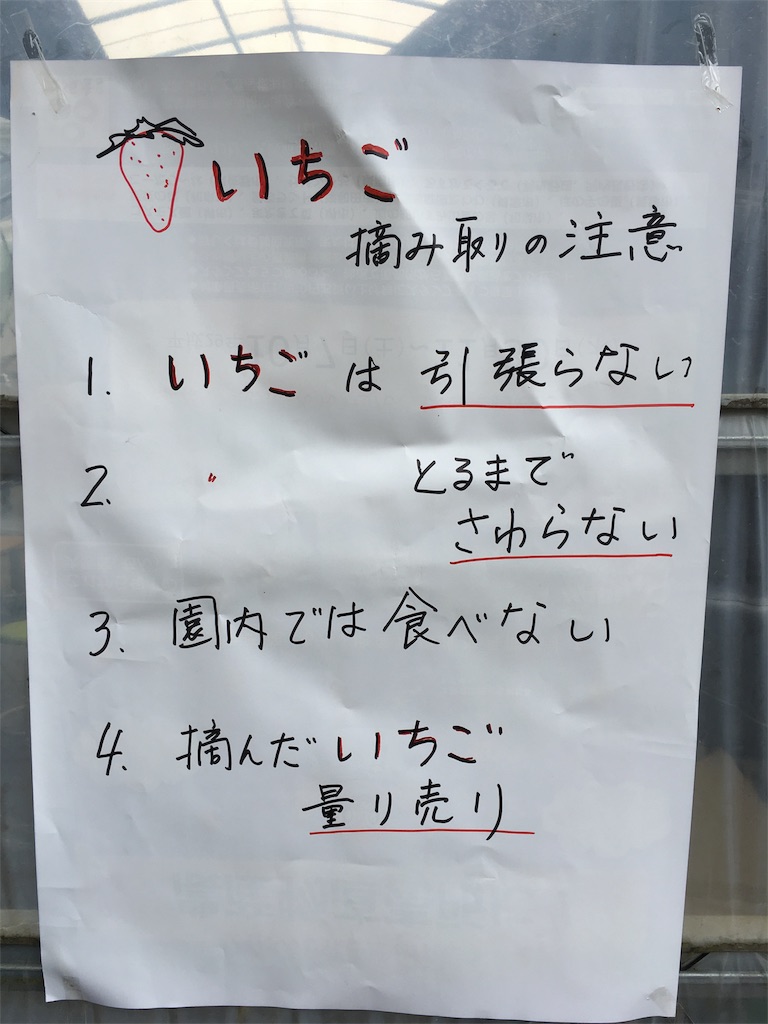 いちご
摘み取りの注意
1. いちごは引張らない
2. 〃 とるまで
さわらない
3. 園内では食べない
4. 摘んだいちご
量り売り